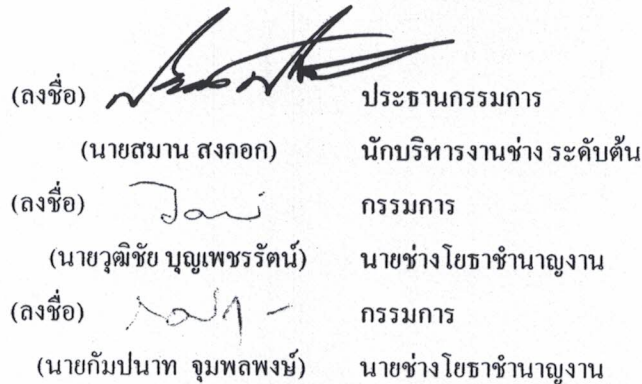 (ลงชื่อ) ประธานกรรมการ
(นายสมาน สงกอก) นักบริหารงานช่าง ระดับต้น
(ลงชื่อ) กรรมการ
(นายวุฒิชัย บุญเพชรรัตน์) นายช่างโยธาชำนาญงาน
(ลงชื่อ) กรรมการ
(นายกัมปนาท จุมพลพงษ์) นายช่างโยธาชำนาญงาน